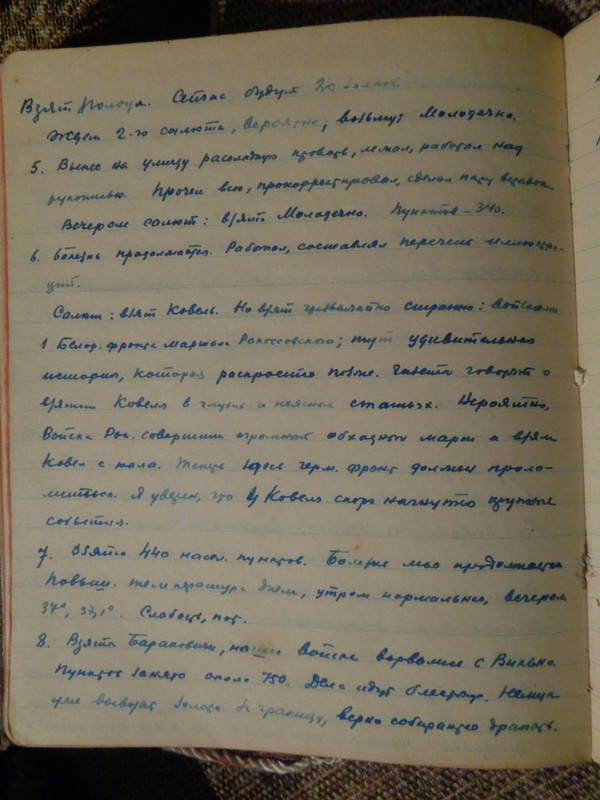 Взят Полоцк. Сейчас будут 20 залпов.
Ждем 2-го салюта, вероятно; возьмут Молодечно.
5. Вынес на улицу раскладную кровать, лежал, работал над
рукописью. Прочел всю, прокорректировал, сделал пару вставок.
Вечером салют: взято Молодечно. Пунктов – 340.
6. Болезнь продолжается. Работал, составлял перечень иллюстра-
ций.
Салют: взят Ковель. Но взят чрезвычайно странно: войсками
1 Белор. фронта маршала Рокоссовского; тут удивительная
история, которая раскроется позже. Газеты говорят о
взятии Ковеля в глухих и неясных статьях. Вероятно,
Войска Рок. совершили огромный обходный марш и взяли
Ковел с тыла. Теперь здесь герм. фронт должен проло-
миться. Я уверен, что у Ковеля скоро начнутся крупные
события.
7. Взято 440 насел. пунктов. Болезнь моя продолжается
Повыш. температура днем, утром нормальная, вечером
37°, 37,1°. Слабость, пот.
8. Взяты Барановичи, наши войска ворвались в Вильно.
Пунктов занято около 750. Дела идут блестяще. Немцы
уже вывозят золото за границу, верно собираются драпать.